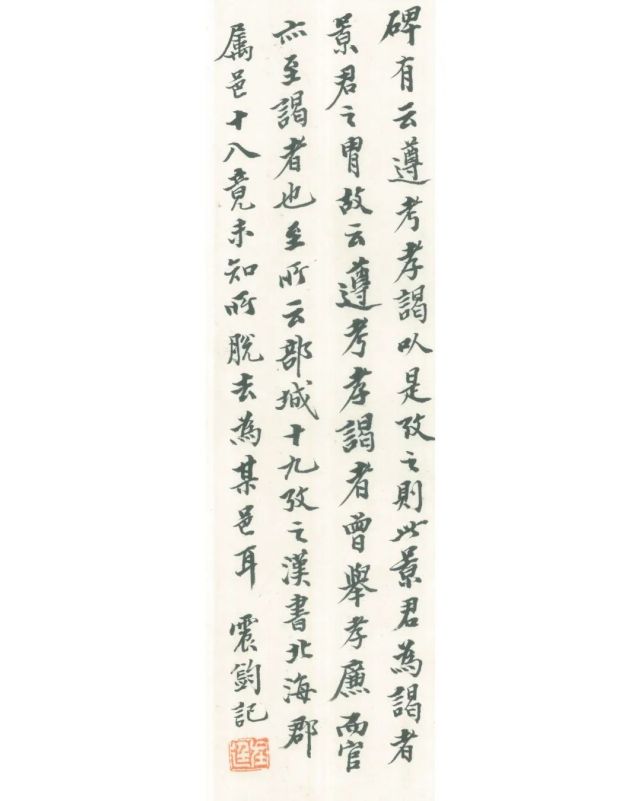 碑有云遵考孝謁㕥是攷之則此景君為謁者
景君之胄故云遵考孝謁者曾舉孝廉而官
亦至謁者也至所云部城十九攷之漢書北海郡
属邑十八竟未知所脫去為某邑耳 震鈞記